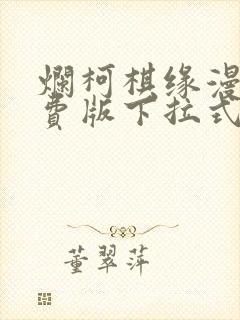 爛柯棋缘漫
费版下拉式
董翠萍